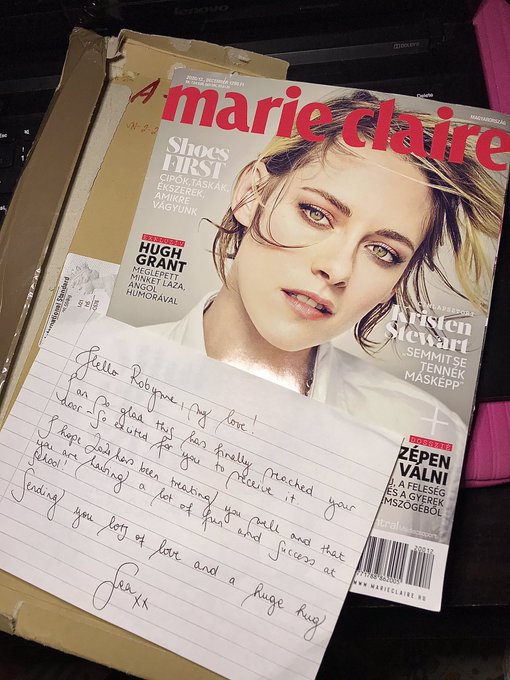 lenovo
DOLBY
Delete
Esc
2020/12., DECEMBER, 1299 FT
MAGYARORSZÁG
marie claire
Shoes
FIRST
CIPŐK, TÁSKÁK,
ÉKSZEREK,
AMIKRE
VÁGYUNK
EXKLUZÍV
HUGH
GRANT
MEGLEPETT
MINKET LAZA,
ANGOL
HUMORÁVAL
CÍMLAPSZTORI
Kristen
Stewart
„SEMMIT SE
TENNÉK
MÁSKÉPP”
+
DOSSZIÉ
ZÉPEN
VÁLNI
J, A FELESÉG
ÉS A GYEREK
MSZÖGÉBŐL
central
20012
WWW.MARIECLAIRE.HU
A-
ernational Standard
Hello Robynne, my love!
I am so glad this has finally reached your
door - So excited for you to receive it.
I hope 2021 has been treating you well and that
you are having a lot of fun and success at
school!
Sending you lots of love and a huge hug
Lea
xx